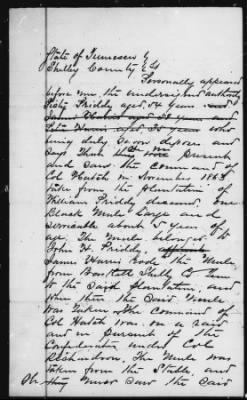 State of Tennessee }
Shelby County } SS
Personally appeared
before me the undersigned authority
Priddy aged 54 years
aged 39 years and
Harris aged 35 years who
being duly sworn deposes and
says that were present
and saw the command of
Col Hatch in November 1863
take from the plantation of
William Priddy deceased one
Black Mule large and
serviceable about 5 years of
age The mule belonged to
John H. Priddy
James Harris rode the Mule
from Bartlett Shelby Co
to the said plantation and
when there the said Mule
was taken. The command of
Col Hatch was on a raid
and in pursuit of the
Confederates under Col
Richardson. The Mule was
taken from the Stable, and
they never saw the said